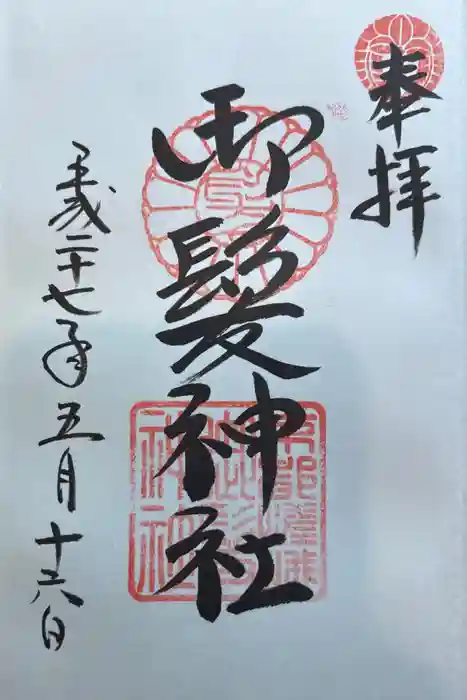 奉拝
御髪神社
平成二十七年五月十六日